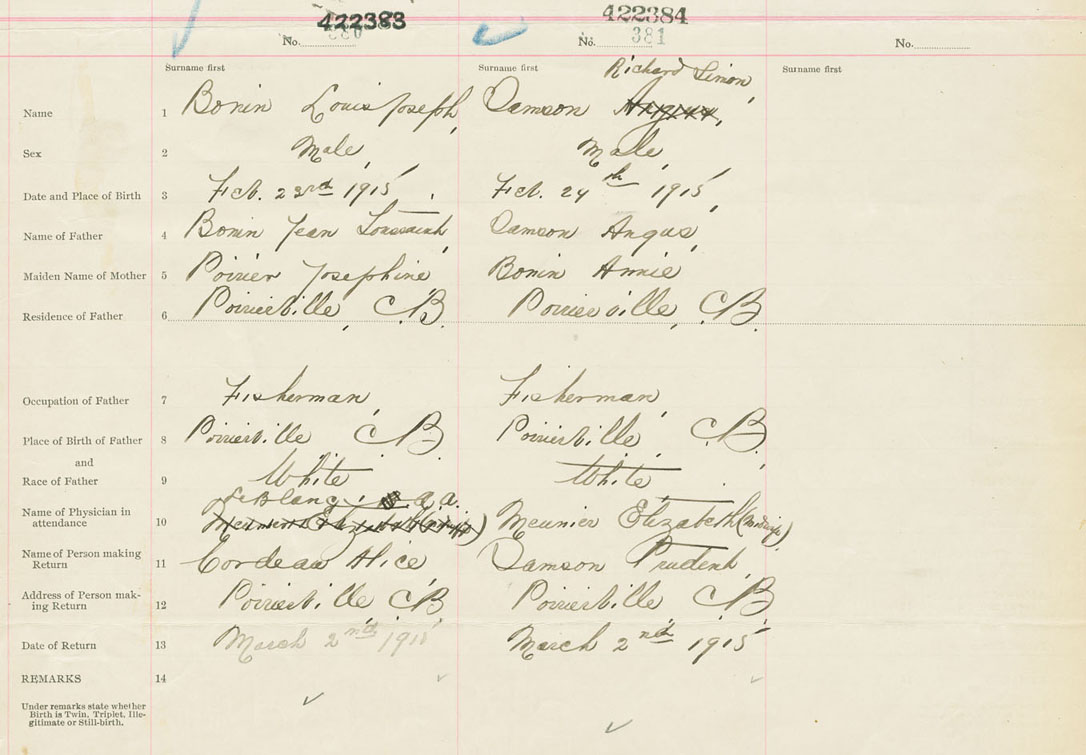 422383 422384
No. 380 No. 381 No.
Surname first Surname first Surname first
Richard Simon,
Name 1 Bonin Louis Joseph, Samson Angus,
Sex 2 Male, Male,
Date and Place of Birth 3 Feb. 23rd 1915, Feb. 24th 1915,
Name of Father 4 Bonin Jean Toussaint, Samson Angus,
Maiden Name of Mother 5 Poirier Josephine, Bonin Annie
Residence of Father 6 Poirierville, C.B. Poirierville, C.B.
Occupation of Father 7 Fisherman, Fisherman,
Place of Birth of Father 8 Poirierville C.B. Poirierville C.B.
and
Race of Father 9 White White
LeBlanc, A.
Name of Physician in
attendance 10 Meunier Elizabeth (midwife) Meunier Elizabeth (midwife)
Name of Person making
Return 11 Cordeau Alice Samson Prudent,
Address of Person mak-
ing Return 12 Poirierville C.B. Poirierville C.B.
Date of Return 13 March 2nd 1915 March 2nd 1915
REMARKS 14
Under remarks state whether
Birth is Twin, Triplet, Ille-
gitimate or Still-birth.